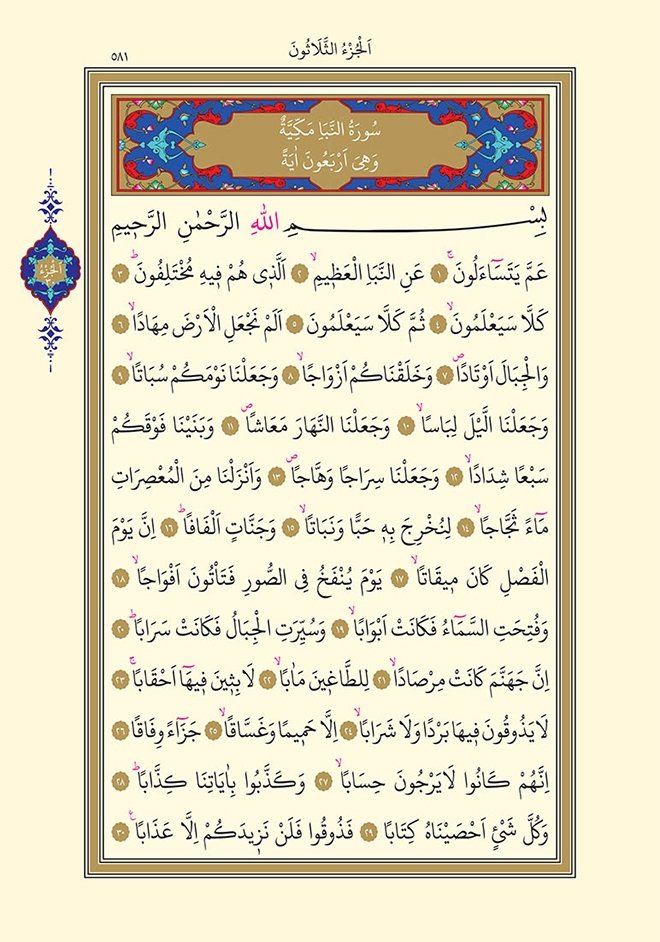 اَلْجُزْءُ الثَّلَاثُونَ
٥٨١
سُورَةُ النَّبَاِ مَكِّيَّةٌ
وَهِىَ اَرْبَعُونَ اٰيَةً
اَلْجُزْءُ
٣٠
بِسْمِ اللهِ الرَّحْمٰنِ الرَّحٖيمِ
عَمَّ يَتَسَٓاءَلُونَۚ ﴿١﴾ عَنِ النَّبَاِ الْعَظٖيمِۙ ﴿٢﴾ اَلَّذٖى هُمْ فٖيهِ مُخْتَلِفُونَۜ ﴿٣﴾
كَلَّا سَيَعْلَمُونَۙ ﴿٤﴾ ثُمَّ كَلَّا سَيَعْلَمُونَ ﴿٥﴾ اَلَمْ نَجْعَلِ الْاَرْضَ مِهَادًاۙ ﴿٦﴾
وَالْجِبَالَ اَوْتَادًاۖ ﴿٧﴾ وَخَلَقْنَاكُمْ اَزْوَاجًاۙ ﴿٨﴾ وَجَعَلْنَا نَوْمَكُمْ سُبَاتًاۙ ﴿٩﴾
وَجَعَلْنَا الَّيْلَ لِبَاسًاۙ ﴿١٠﴾ وَجَعَلْنَا النَّهَارَ مَعَاشًاۖ ﴿١١﴾ وَبَنَيْنَا فَوْقَكُمْ
سَبْعًا شِدَادًاۙ ﴿١٢﴾ وَجَعَلْنَا سِرَاجًا وَهَّاجًاۖ ﴿١٣﴾ وَاَنْزَلْنَا مِنَ الْمُعْصِرَاتِ
مَٓاءً ثَجَّاجًاۙ ﴿١٤﴾ لِنُخْرِجَ بِهٖ حَبًّا وَنَبَاتًاۙ ﴿١٥﴾ وَجَنَّاتٍ اَلْفَافًاۜ ﴿١٦﴾ اِنَّ يَوْمَ
الْفَصْلِ كَانَ مٖيقَاتًاۙ ﴿١٧﴾ يَوْمَ يُنْفَخُ فِى الصُّورِ فَتَاْتُونَ اَفْوَاجًاۙ ﴿١٨﴾
وَفُتِحَتِ السَّمَٓاءُ فَكَانَتْ اَبْوَابًاۙ ﴿١٩﴾ وَسُيِّرَتِ الْجِبَالُ فَكَانَتْ سَرَابًاۜ ﴿٢٠﴾
اِنَّ جَهَنَّمَ كَانَتْ مِرْصَادًاۙ ﴿٢١﴾ لِلطَّاغٖينَ مَاٰبًاۙ ﴿٢٢﴾ لَابِثٖينَ فٖيهَٓا اَحْقَابًاۚ ﴿٢٣﴾
لَا يَذُوقُونَ فٖيهَا بَرْدًا وَلَا شَرَابًاۙ ﴿٢٤﴾ اِلَّا حَمٖيمًا وَغَسَّاقًاۙ ﴿٢٥﴾ جَزَٓاءً وِفَاقًاۜ ﴿٢٦﴾
اِنَّهُمْ كَانُوا لَا يَرْجُونَ حِسَابًاۙ ﴿٢٧﴾ وَكَذَّبُوا بِاٰيَاتِنَا كِذَّابًاۜ ﴿٢٨﴾
وَكُلَّ شَىْءٍ اَحْصَيْنَاهُ كِتَابًاۙ ﴿٢٩﴾ فَذُوقُوا فَلَنْ نَزٖيدَكُمْ اِلَّا عَذَابًاࣖ ﴿٣٠﴾